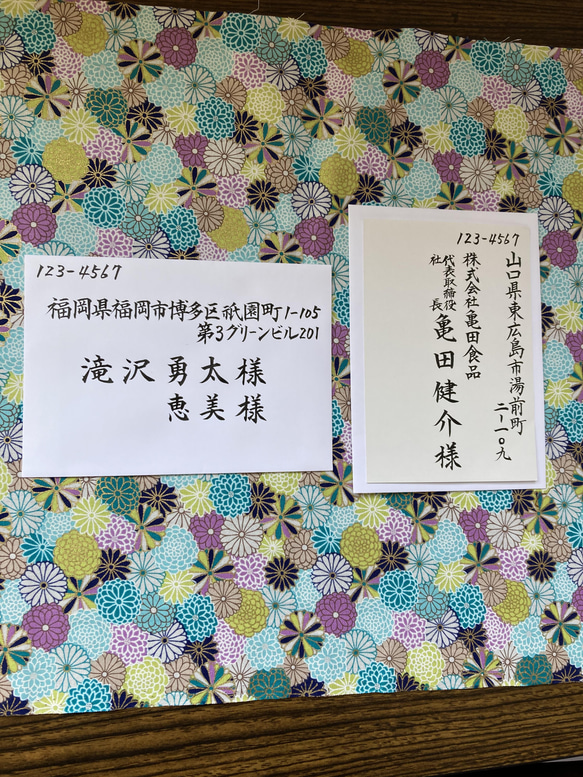 123-4567
福岡県福岡市博多区祇園町1-105
第3グリーンビル201
滝沢勇太様
恵美様
123-4567
山口県東広島市湯前町
二-一〇九
株式会社亀田食品
代表取締役
社長
亀田健介様